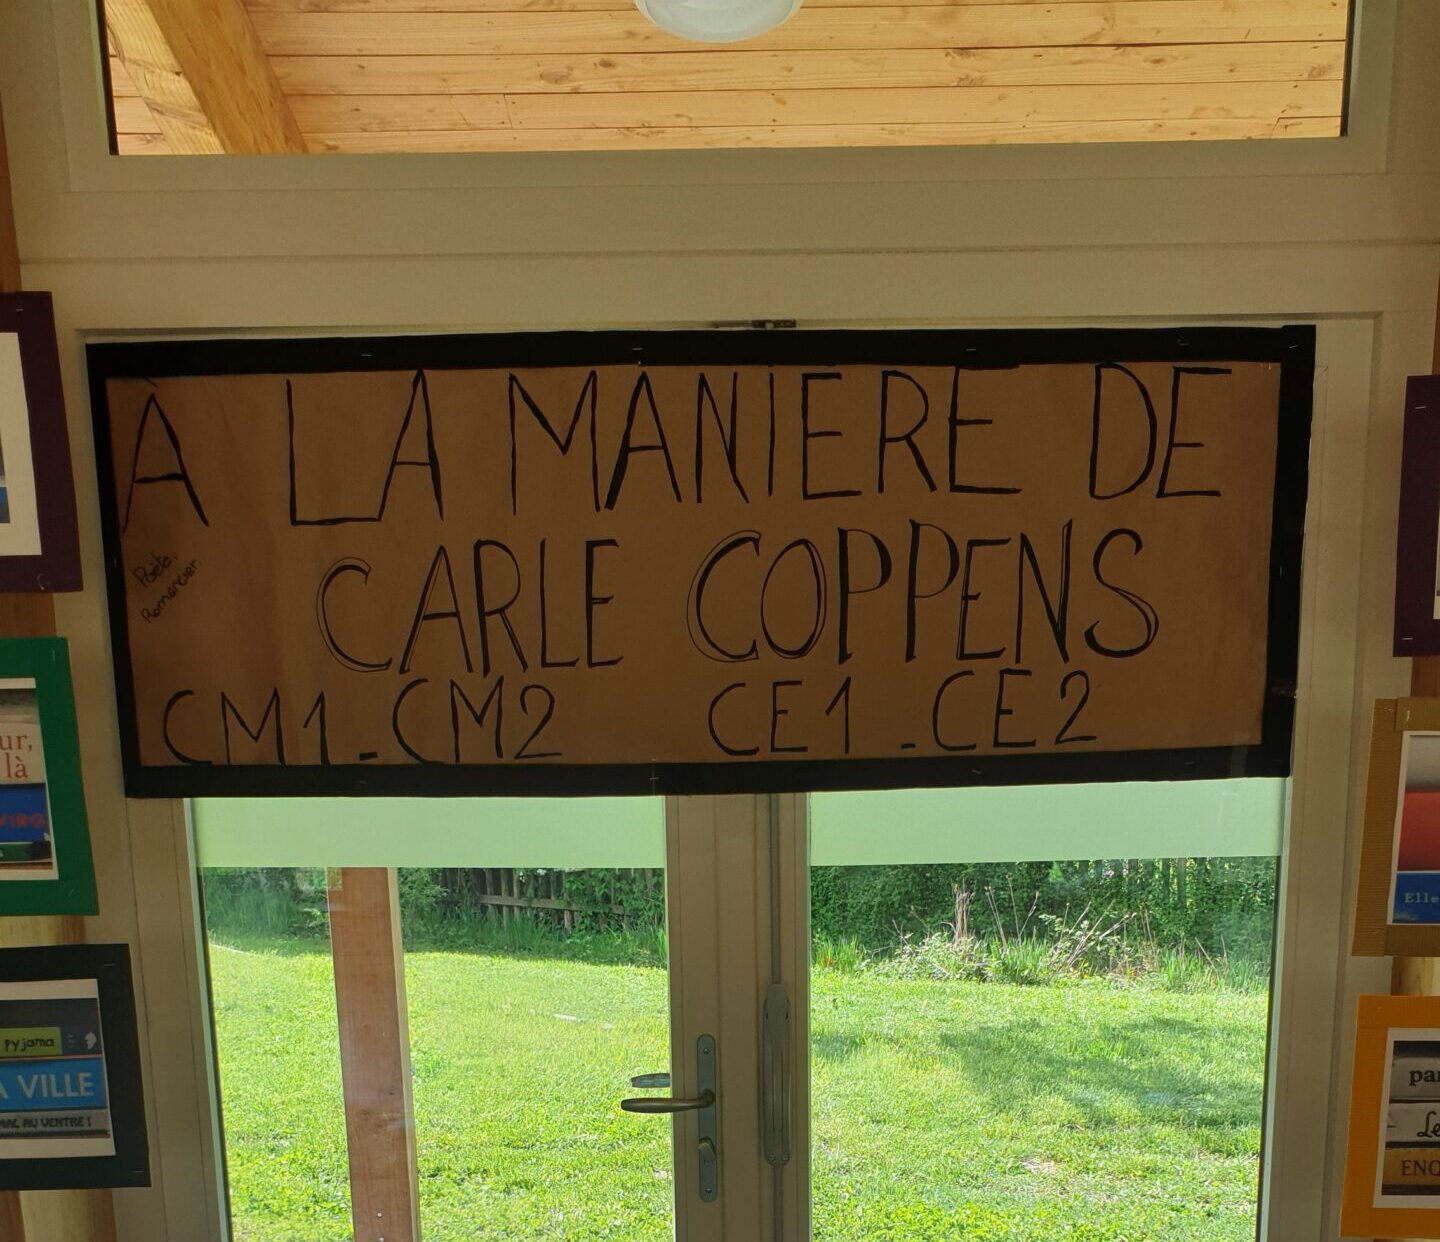 À LA MANIERE DE
Poète,
Romancier
CARLE COPPENS
CM1-CM2 CE1-CE2
ur,
là
Pyjama
A VILLE
MAL AU VENTRE !
Elle
par
Le
ENQ